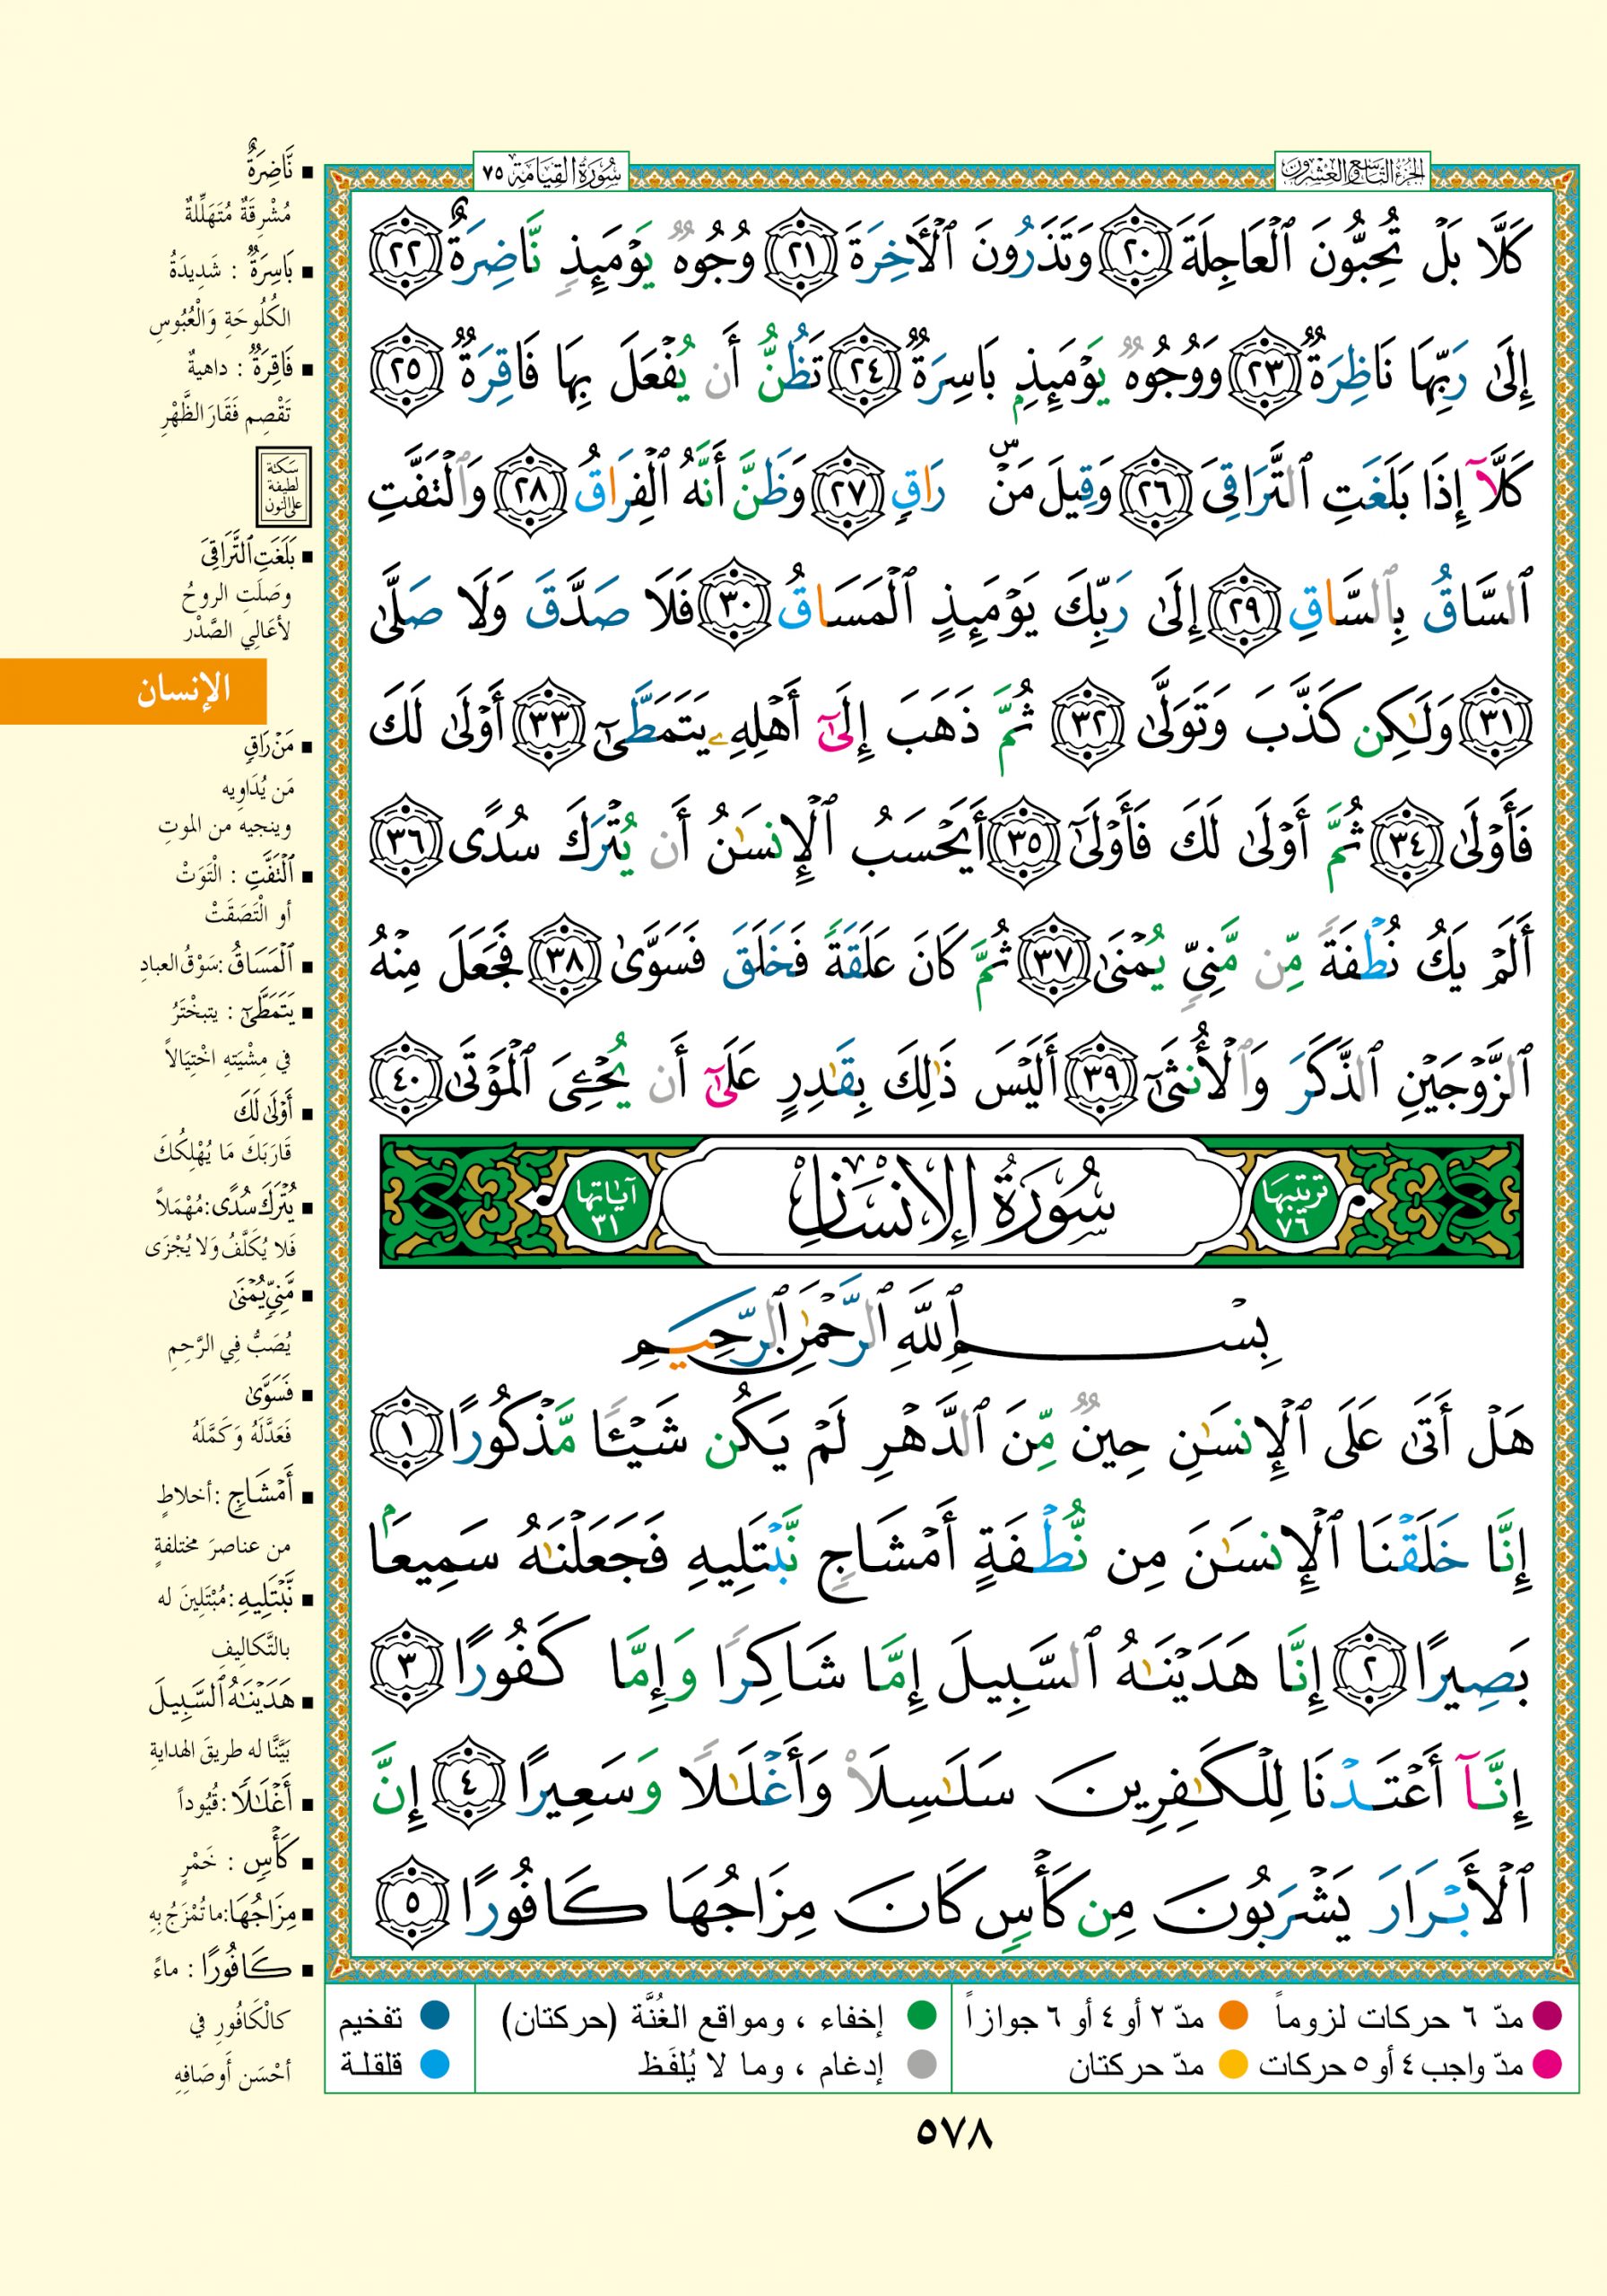 الجزء التاسع والعشرون
سورة القيامة ٧٥
كَلَّا بَلْ تُحِبُّونَ ٱلْعَاجِلَةَ ٢٠ وَتَذَرُونَ ٱلْأَخِرَةَ ٢١ وُجُوهٌ يَوْمَئِذٍ نَّاضِرَةٌ ٢٢
إِلَىٰ رَبِّهَا نَاظِرَةٌ ٢٣ وَوُجُوهٌ يَوْمَئِذٍۭ بَاسِرَةٌ ٢٤ تَظُنُّ أَن يُفْعَلَ بِهَا فَاقِرَةٌ ٢٥
كَلَّآ إِذَا بَلَغَتِ ٱلتَّرَاقِىَ ٢٦ وَقِيلَ مَنْۜ رَاقٍ ٢٧ وَظَنَّ أَنَّهُ ٱلْفِرَاقُ ٢٨ وَٱلْتَفَّتِ
ٱلسَّاقُ بِٱلسَّاقِ ٢٩ إِلَىٰ رَبِّكَ يَوْمَئِذٍ ٱلْمَسَاقُ ٣٠ فَلَا صَدَّقَ وَلَا صَلَّىٰ
٣١ وَلَـٰكِن كَذَّبَ وَتَوَلَّىٰ ٣٢ ثُمَّ ذَهَبَ إِلَىٰٓ أَهْلِهِۦ يَتَمَطَّىٰٓ ٣٣ أَوْلَىٰ لَكَ
فَأَوْلَىٰ ٣٤ ثُمَّ أَوْلَىٰ لَكَ فَأَوْلَىٰٓ ٣٥ أَيَحْسَبُ ٱلْإِنسَـٰنُ أَن يُتْرَكَ سُدًى ٣٦
أَلَمْ يَكُ نُطْفَةً مِّن مَّنِىٍّ يُمْنَىٰ ٣٧ ثُمَّ كَانَ عَلَقَةً فَخَلَقَ فَسَوَّىٰ ٣٨ فَجَعَلَ مِنْهُ
ٱلزَّوْجَيْنِ ٱلذَّكَرَ وَٱلْأُنثَىٰٓ ٣٩ أَلَيْسَ ذَٰلِكَ بِقَـٰدِرٍ عَلَىٰٓ أَن يُحْـِۧىَ ٱلْمَوْتَىٰ ٤٠
ترتيبها ٧٦
سورة الإنسان
آياتها ٣١
بِسْمِ ٱللَّهِ ٱلرَّحْمَـٰنِ ٱلرَّحِيمِ
هَلْ أَتَىٰ عَلَى ٱلْإِنسَـٰنِ حِينٌ مِّنَ ٱلدَّهْرِ لَمْ يَكُن شَيْـًٔا مَّذْكُورًا ١
إِنَّا خَلَقْنَا ٱلْإِنسَـٰنَ مِن نُّطْفَةٍ أَمْشَاجٍ نَّبْتَلِيهِ فَجَعَلْنَـٰهُ سَمِيعًۢا
بَصِيرًا ٢ إِنَّا هَدَيْنَـٰهُ ٱلسَّبِيلَ إِمَّا شَاكِرًا وَإِمَّا كَفُورًا ٣
إِنَّآ أَعْتَدْنَا لِلْكَـٰفِرِينَ سَلَـٰسِلَا۟ وَأَغْلَـٰلًا وَسَعِيرًا ٤ إِنَّ
ٱلْأَبْرَارَ يَشْرَبُونَ مِن كَأْسٍ كَانَ مِزَاجُهَا كَافُورًا ٥
نَّاضِرَةٌ
مُشْرِقَةٌ مُتَهَلِّلَةٌ
بَاسِرَةٌ : شَدِيدَةُ
الكُلُوحَةِ وَالْعُبُوسِ
فَاقِرَةٌ : داهيةٌ
تَقْصِم فَقَارَ الظَّهْرِ
سكتة
لطيفة
على النون
بَلَغَتِ ٱلتَّرَاقِىَ
وصَلَتِ الروحُ
لأعَالِي الصَّدْر
الإنسان
مَنْ رَاقٍ
مَن يُدَاوِيه
وينجيه من الموتِ
ٱلْتَفَّتِ : الْتَوَتْ
أو الْتَصَقَتْ
ٱلْمَسَاقُ : سَوْقُ العبادِ
يَتَمَطَّىٰٓ : يتبخْتَرُ
في مِشْيَتِهِ اخْتِيَالاً
أَوْلَىٰ لَكَ
قَارَبَكَ مَا يُهْلِكُكَ
يُتْرَكَ سُدًى : مُهْمَلاً
فَلا يُكَلَّفُ وَلا يُجْزَى
مَّنِىٍّ يُمْنَىٰ
يُصَبُّ فِي الرَّحِمِ
فَسَوَّىٰ
فَعَدَّلَهُ وَكَمَّلَهُ
أَمْشَاجٍ : أخلاطٍ
من عناصرَ مختلفةٍ
نَّبْتَلِيهِ : مُبْتَلِينَ له
بالتَّكاليفِ
هَدَيْنَـٰهُ ٱلسَّبِيلَ
بَيَّنَّا له طريقَ الهدايةِ
أَغْلَـٰلًا : قُيُوداً
كَأْسٍ : خَمْرٍ
مِزَاجُهَا : ما تُمْزَجُ بِهِ
كَافُورًا : ماءً
كالْكَافُورِ في
أحْسَن أوصَافِهِ
مدّ ٦ حركات لزوماً
مدّ ٢ أو ٤ أو ٦ جوازاً
إخفاء ، ومواقع الغُنَّة (حركتان)
تفخيم
مدّ واجب ٤ أو ٥ حركات
مدّ حركتان
إدغام ، وما لا يُلفَظ
قلقلة
٥٧٨